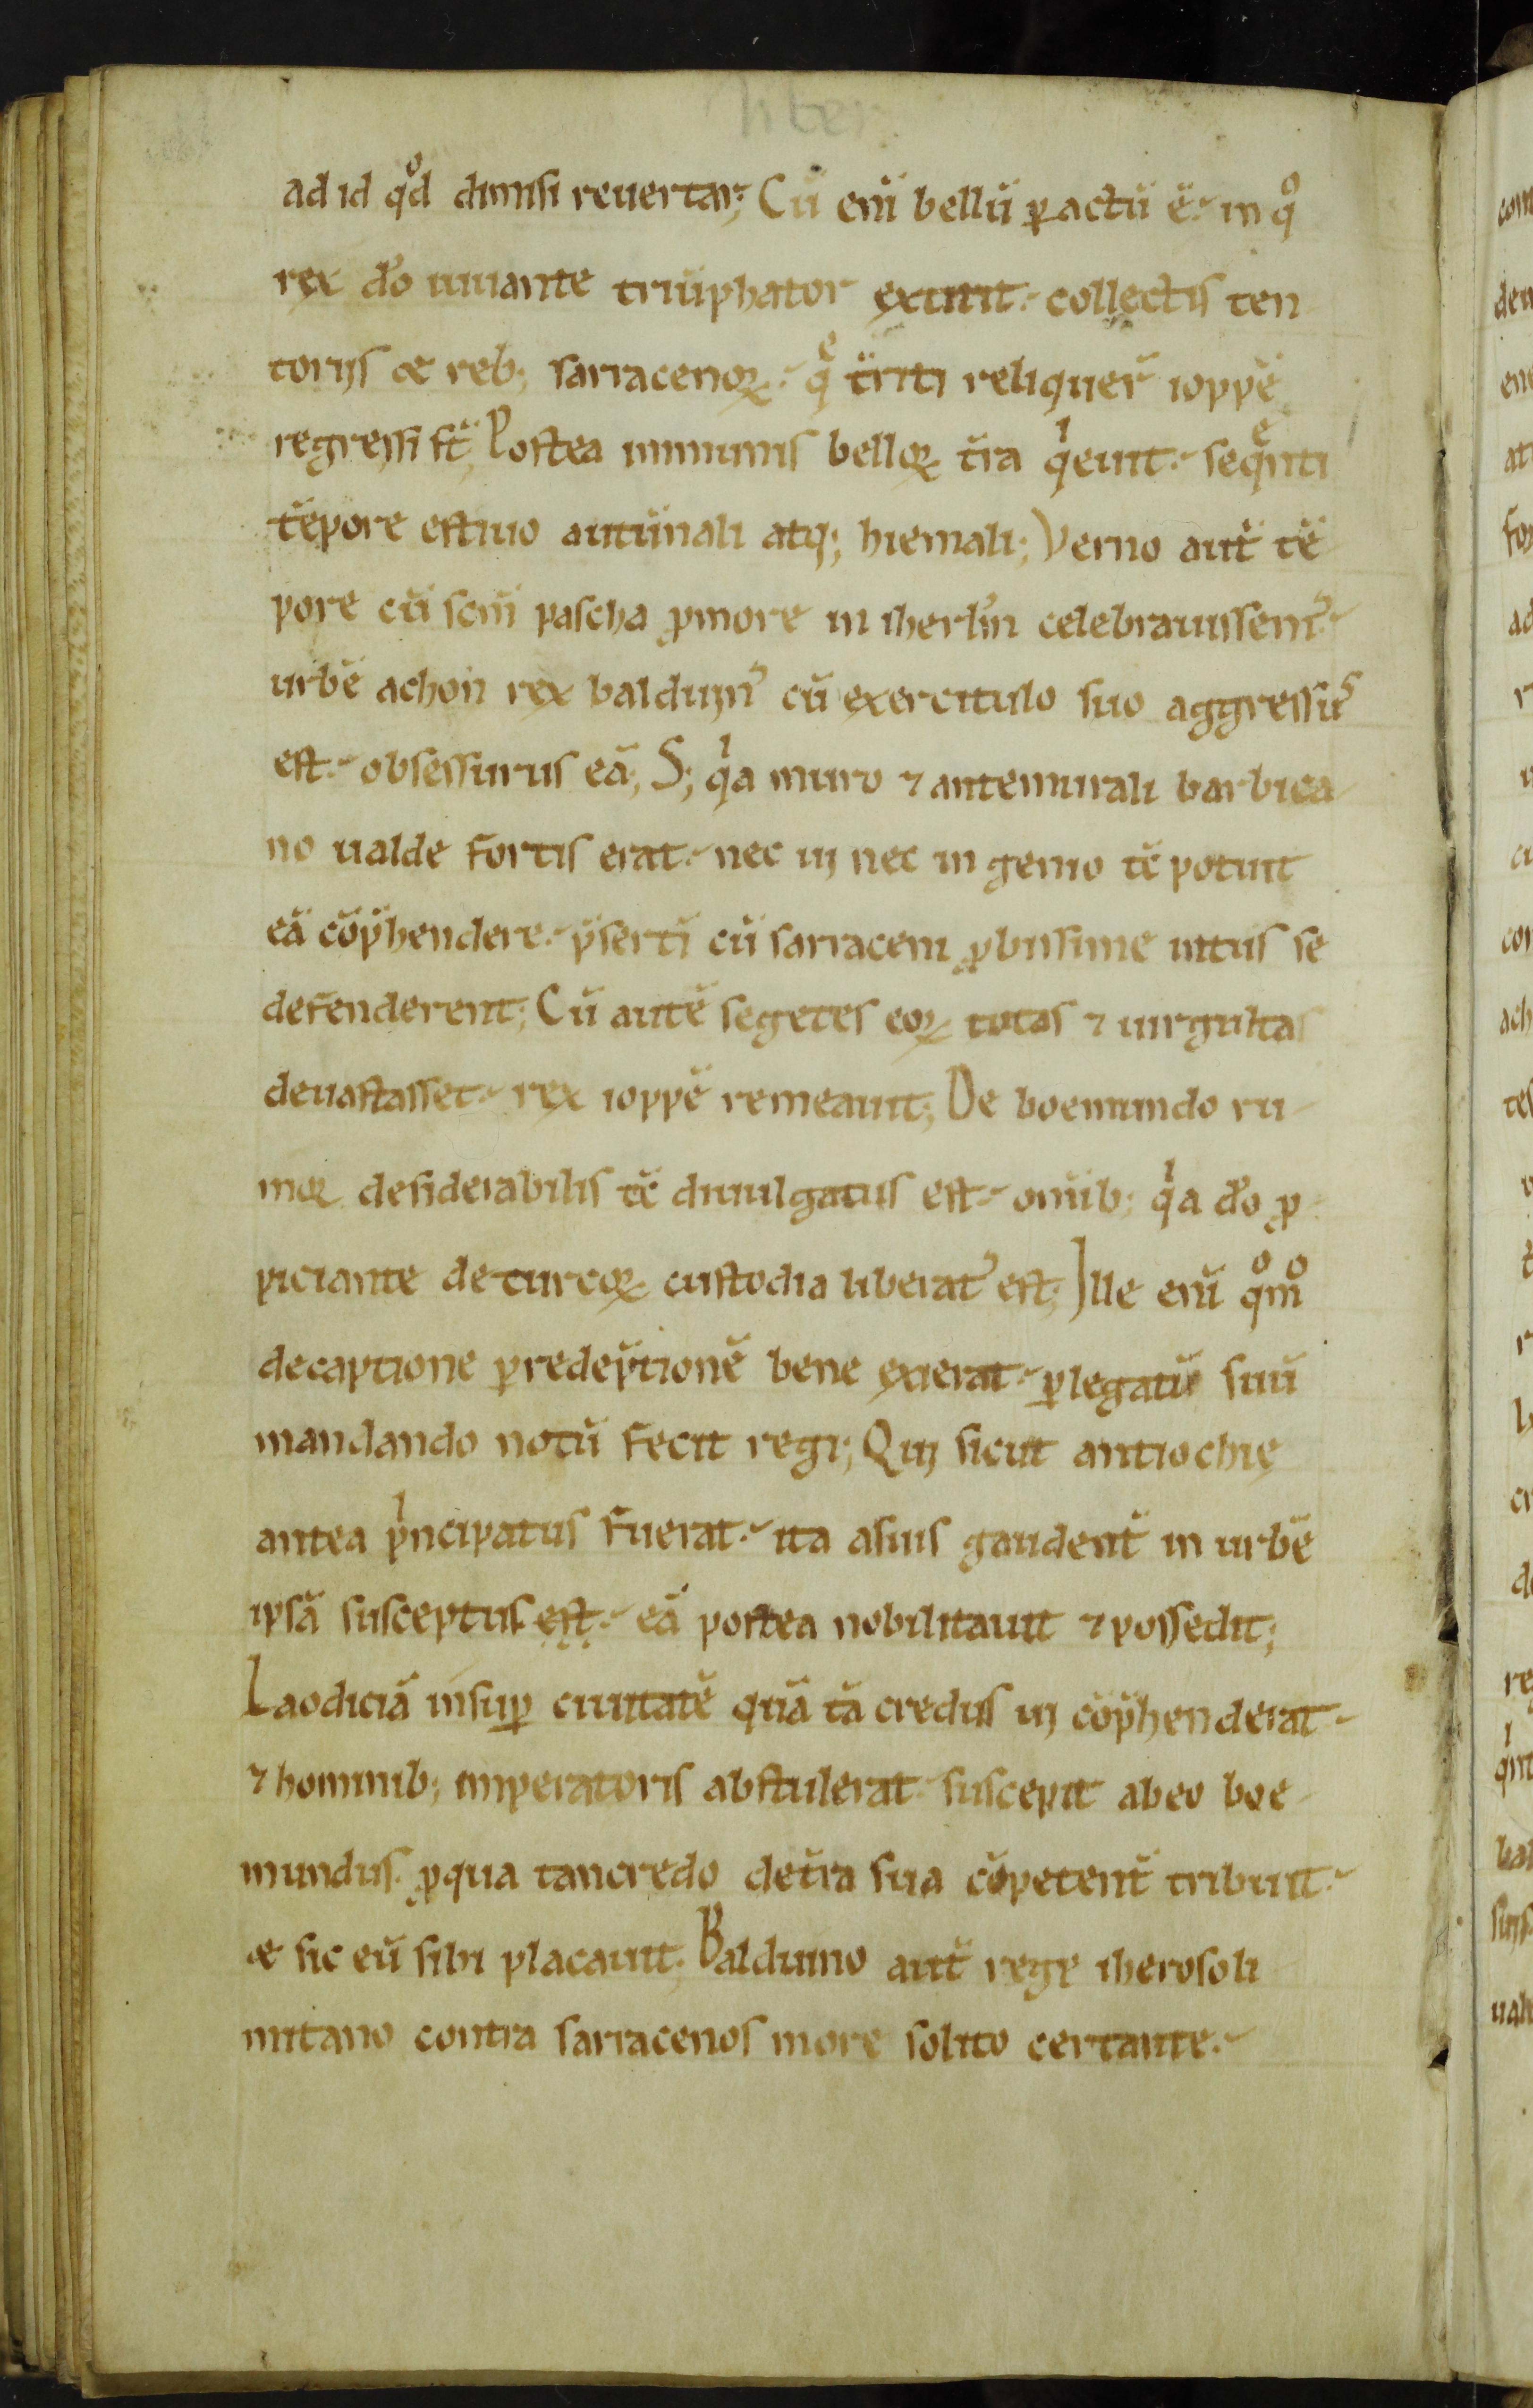 ad id qͦd dimisi reuertar; Cū enī bellū ꝑactū ē. in qͦ
rex dō iuuante triūphator extitit. collectis ten
torijs & reb; sarracenoꝝ. qͤ t̄riti reliquer̄ ioppē
regressi s̄t; Postea inmunis belloꝝ t̄ra qͥeuit. seqͤnti
tēpore estiuo autūnali atq; hiemali; Verno aut̄ tē
pore cū sc̄m pascha ꝓmore in iherl̄m celebrauissem᾽
urbē achon rex balduin᾽ cū exercitulo suo aggressuˢ
est. obsessurus eā; S; qͥa muro ⁊ antemurali barbica
no ualde fortis erat. nec ui nec in genio tc̄ potuit
eā cōp̄hendere. p̄sertī cū sarraceni ꝓbissime intus se
defenderent; Cū autē segetes eoꝝ totas ⁊ uirgultas
deuastasset. rex ioppē remeauit; De boemundo ru
moꝝ desiderabilis tc̄ diuulgatus est. omīb; qͥa dō ꝓ
piciante de turcoꝝ custodia liberat᾽ est; Ille enī qͦmͦ
decaptione ꝑredēptionē bene exierat. ꝑlegatū suū
mandando notū fecit regi; Qui sicut antiochię
antea pͥncipatus fuerat. ita asuis gaudent̄ in urbē
ipsā susceptus est. eā postea nobilitauit ⁊ possedit;
Laodiciā insuꝑ ciuitatē quā tā credus ui cōp̄henderat.
⁊ hominib; imperatoris abstulerat. suscepit abeo boe
mundus. ꝓqua tancredo det̄ra sua cōpetent̄ tribuit.
& sic eū sibi placauit. Balduino aut̄ rege iherosoli
mitano contra sarracenos more solito certante.